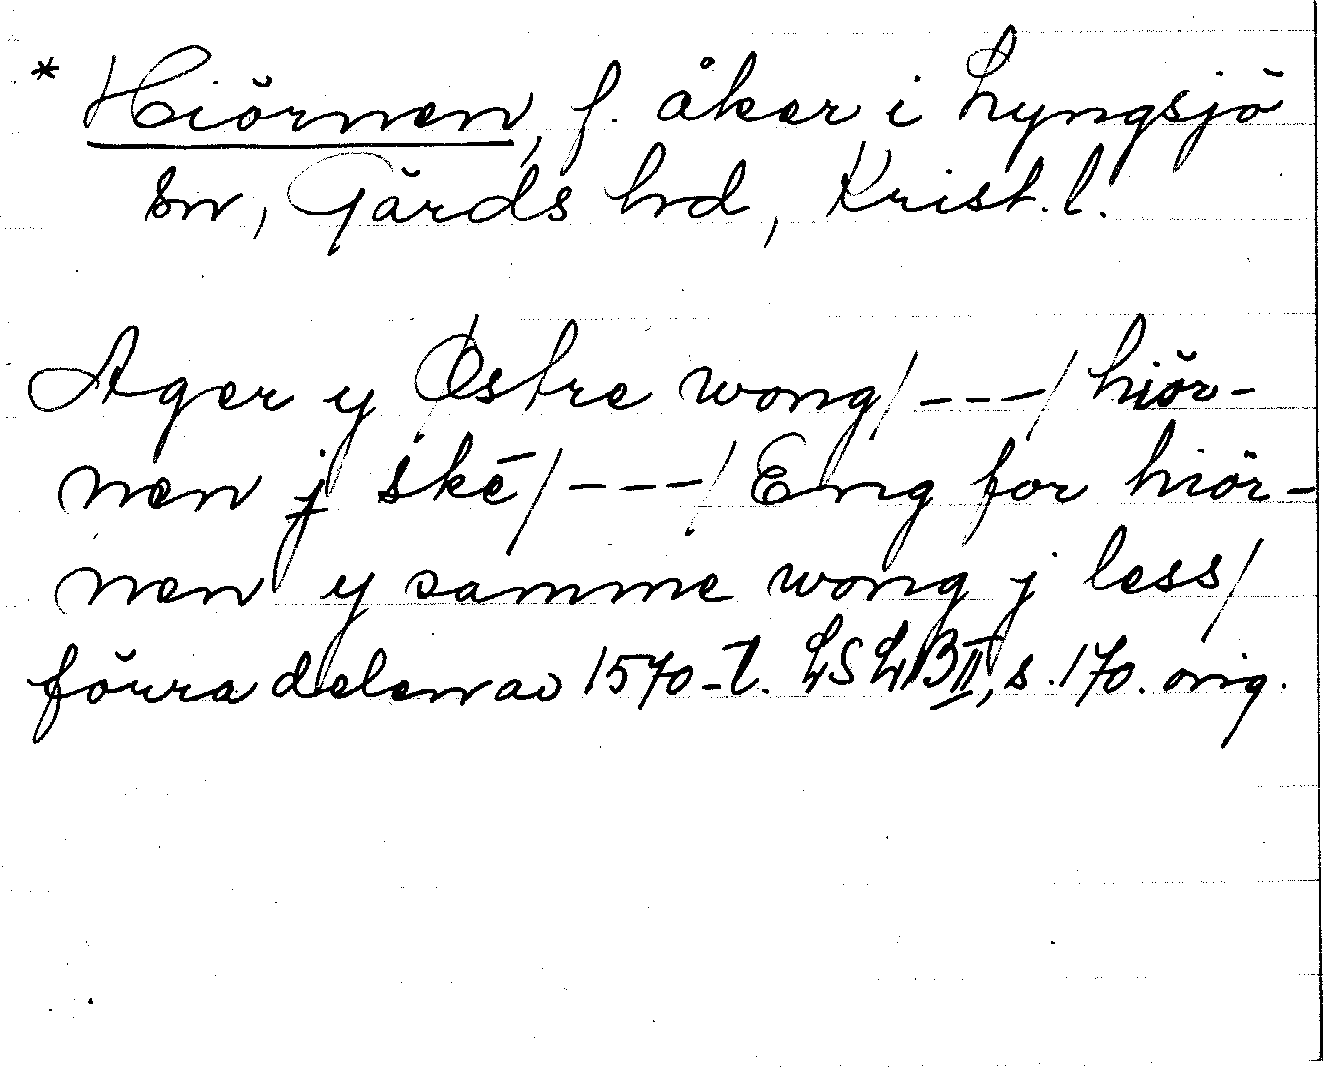 * Hiörnen, f. åker i Lyngsjö
sn, Gärds hrd, Krist. l.
Ager y Østre wong/---/hiör-
nen j skē/---/Eng for hiör-
nen y samme wong j less/
förra delen av 1570-t. LSLB II, s. 170. orig.